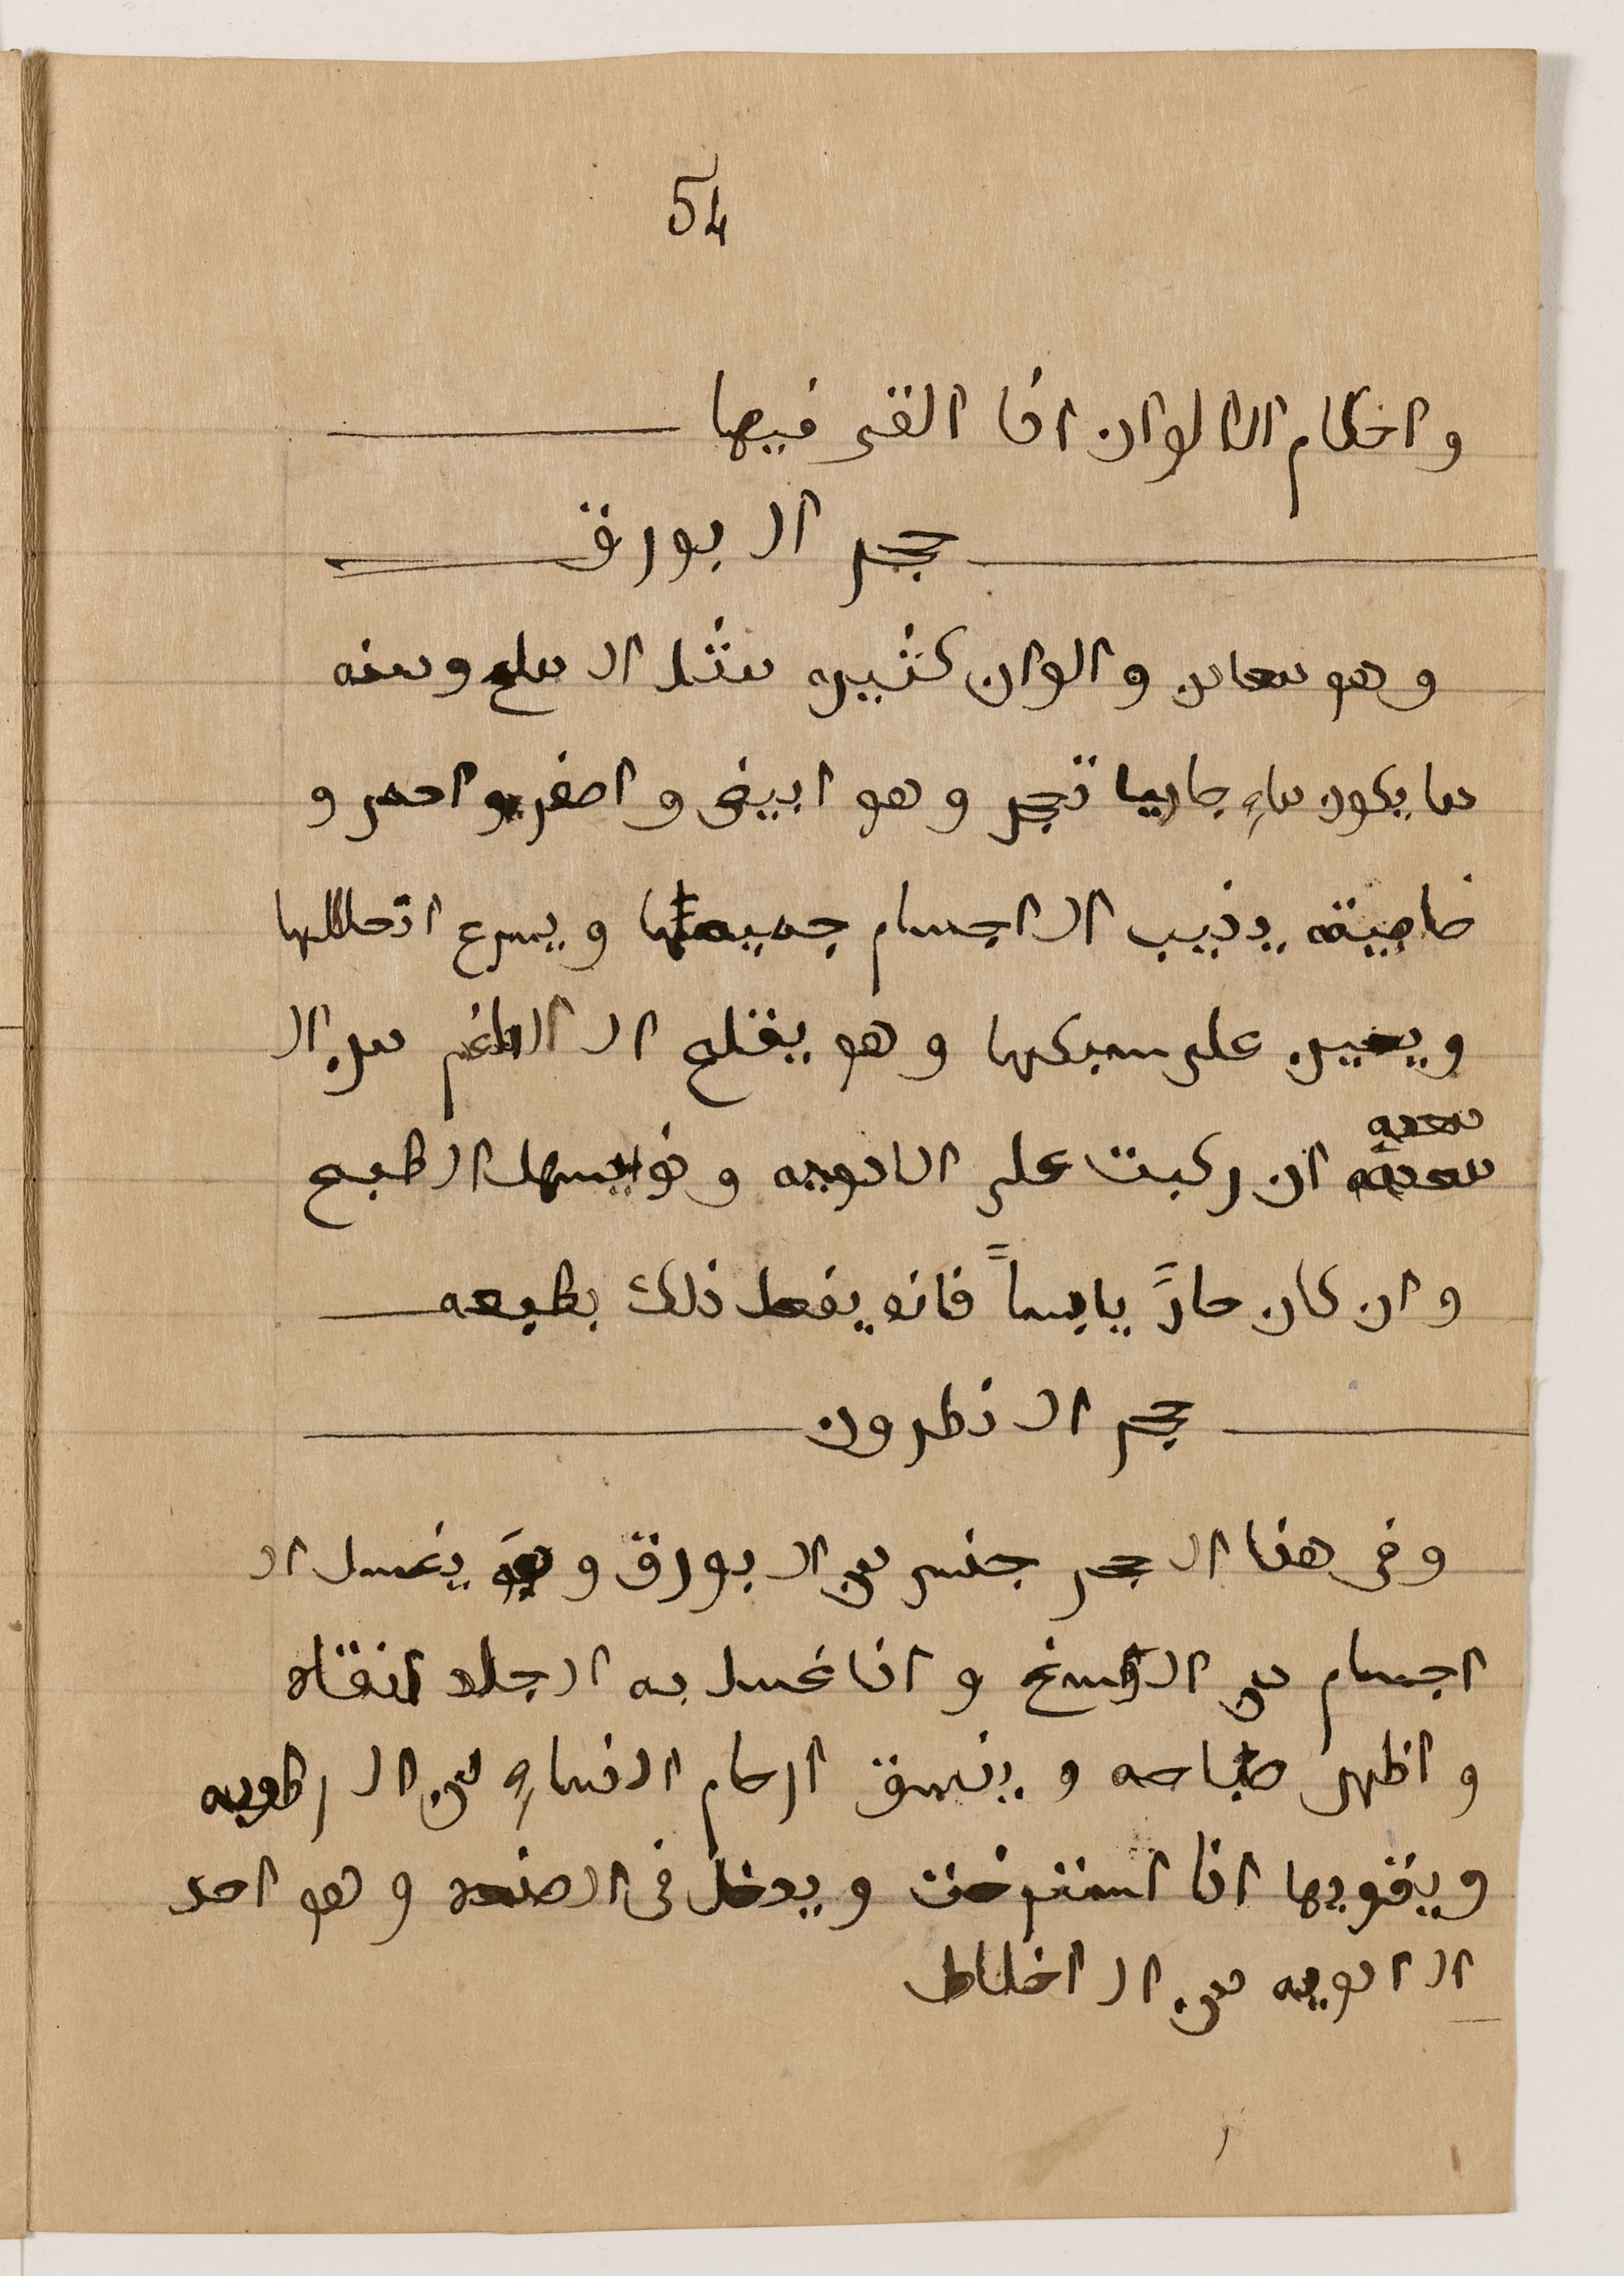 54
واحكام الالوان اذا القى فيها
حجر البورق
وهو معادن والوان كثيره مثل الملح ومنه
ما يكون ماءِ جاريا تحجر وهو ابيض واصفر واحمر و
خاصيته يذيب الاجسام جميعها ويسرع انحلالها
ويعين على سبكها وهو يقلع البلغم من ال
معديه
معديه ان ركبت على الادويه وهو يسهل الطبع
وان كان حارً يابساً فانه يفعل ذلك بطبعه
حجر النطرون
وفى هذا الحجر جنس من البورق و يغسل ال
اجسام من الوسخ واذا غسل به الجلد انقاه
واظهر صباحه وينسق ارحام النساءِ من الرطوبه
ويقويها اذا استرخت ويدخل فى الصنعه وهو احد
الادويه من الاخلاط